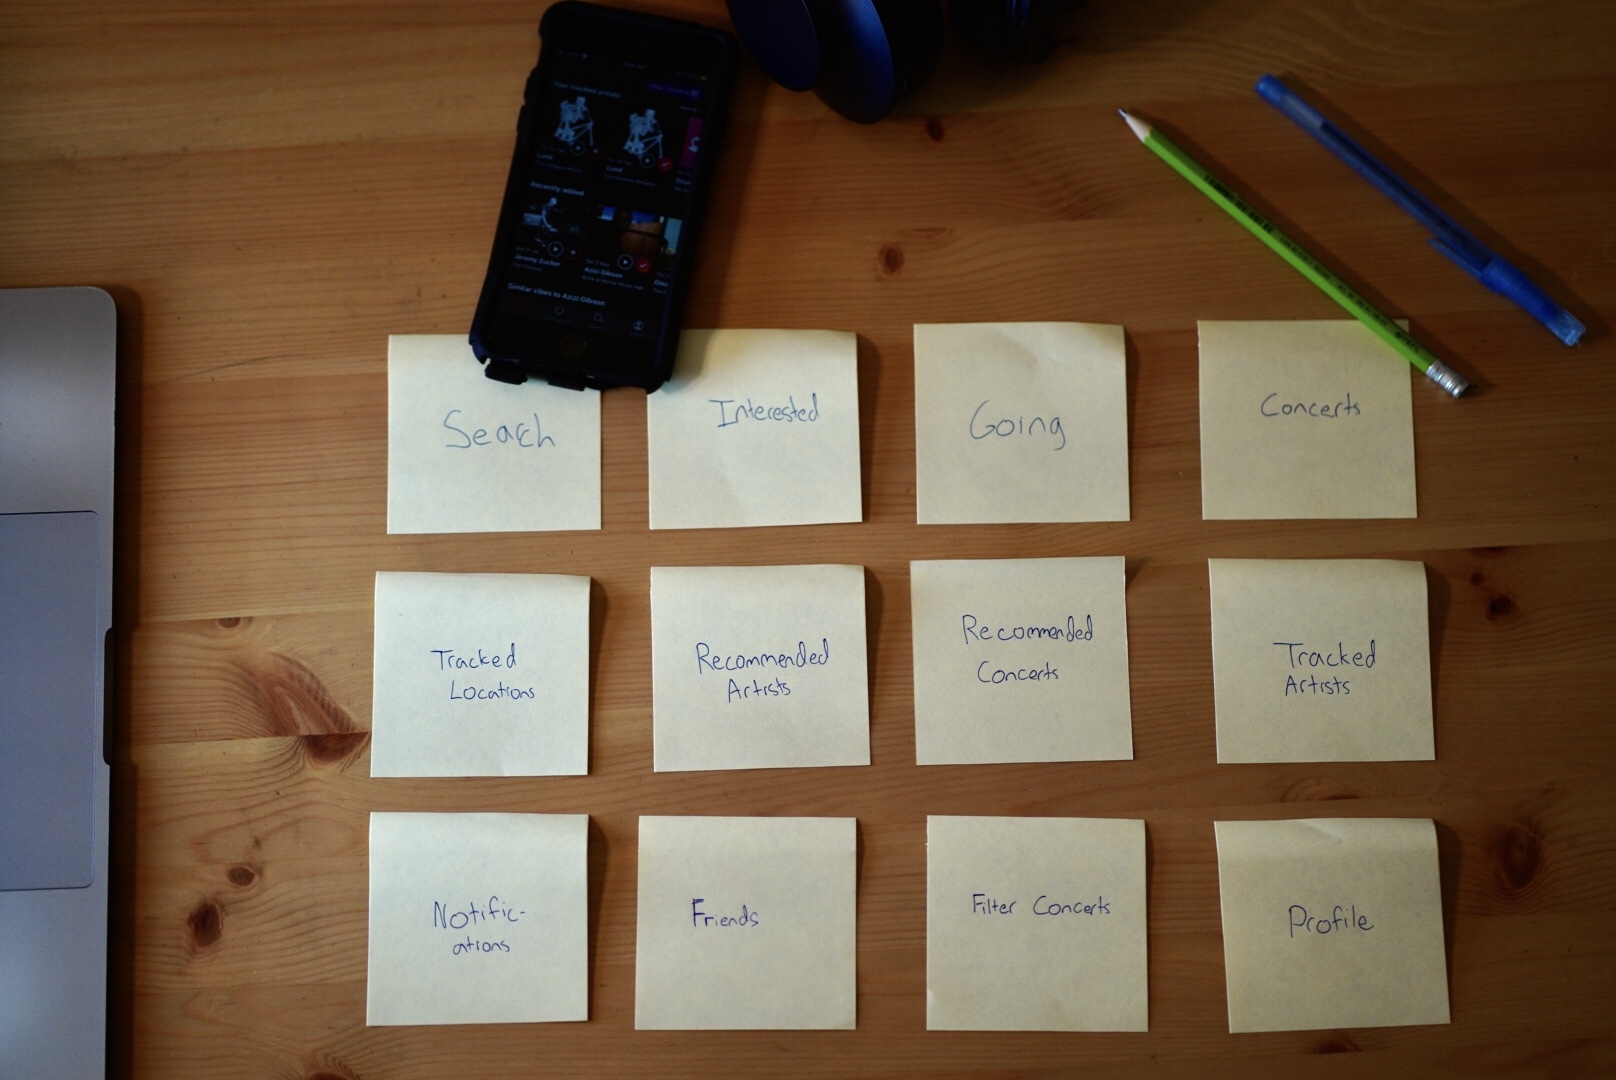 Your tracked artists
Lund
Lund
Recently added
Jeremy Zucker
Azizi Gibson
Similar vibes to Azizi Gibson
Search
Interested
Going
Concerts
Tracked
Locations
Recommended
Artists
Recommended
Concerts
Tracked
Artists
Notific-
ations
Friends
Filter Concerts
Profile